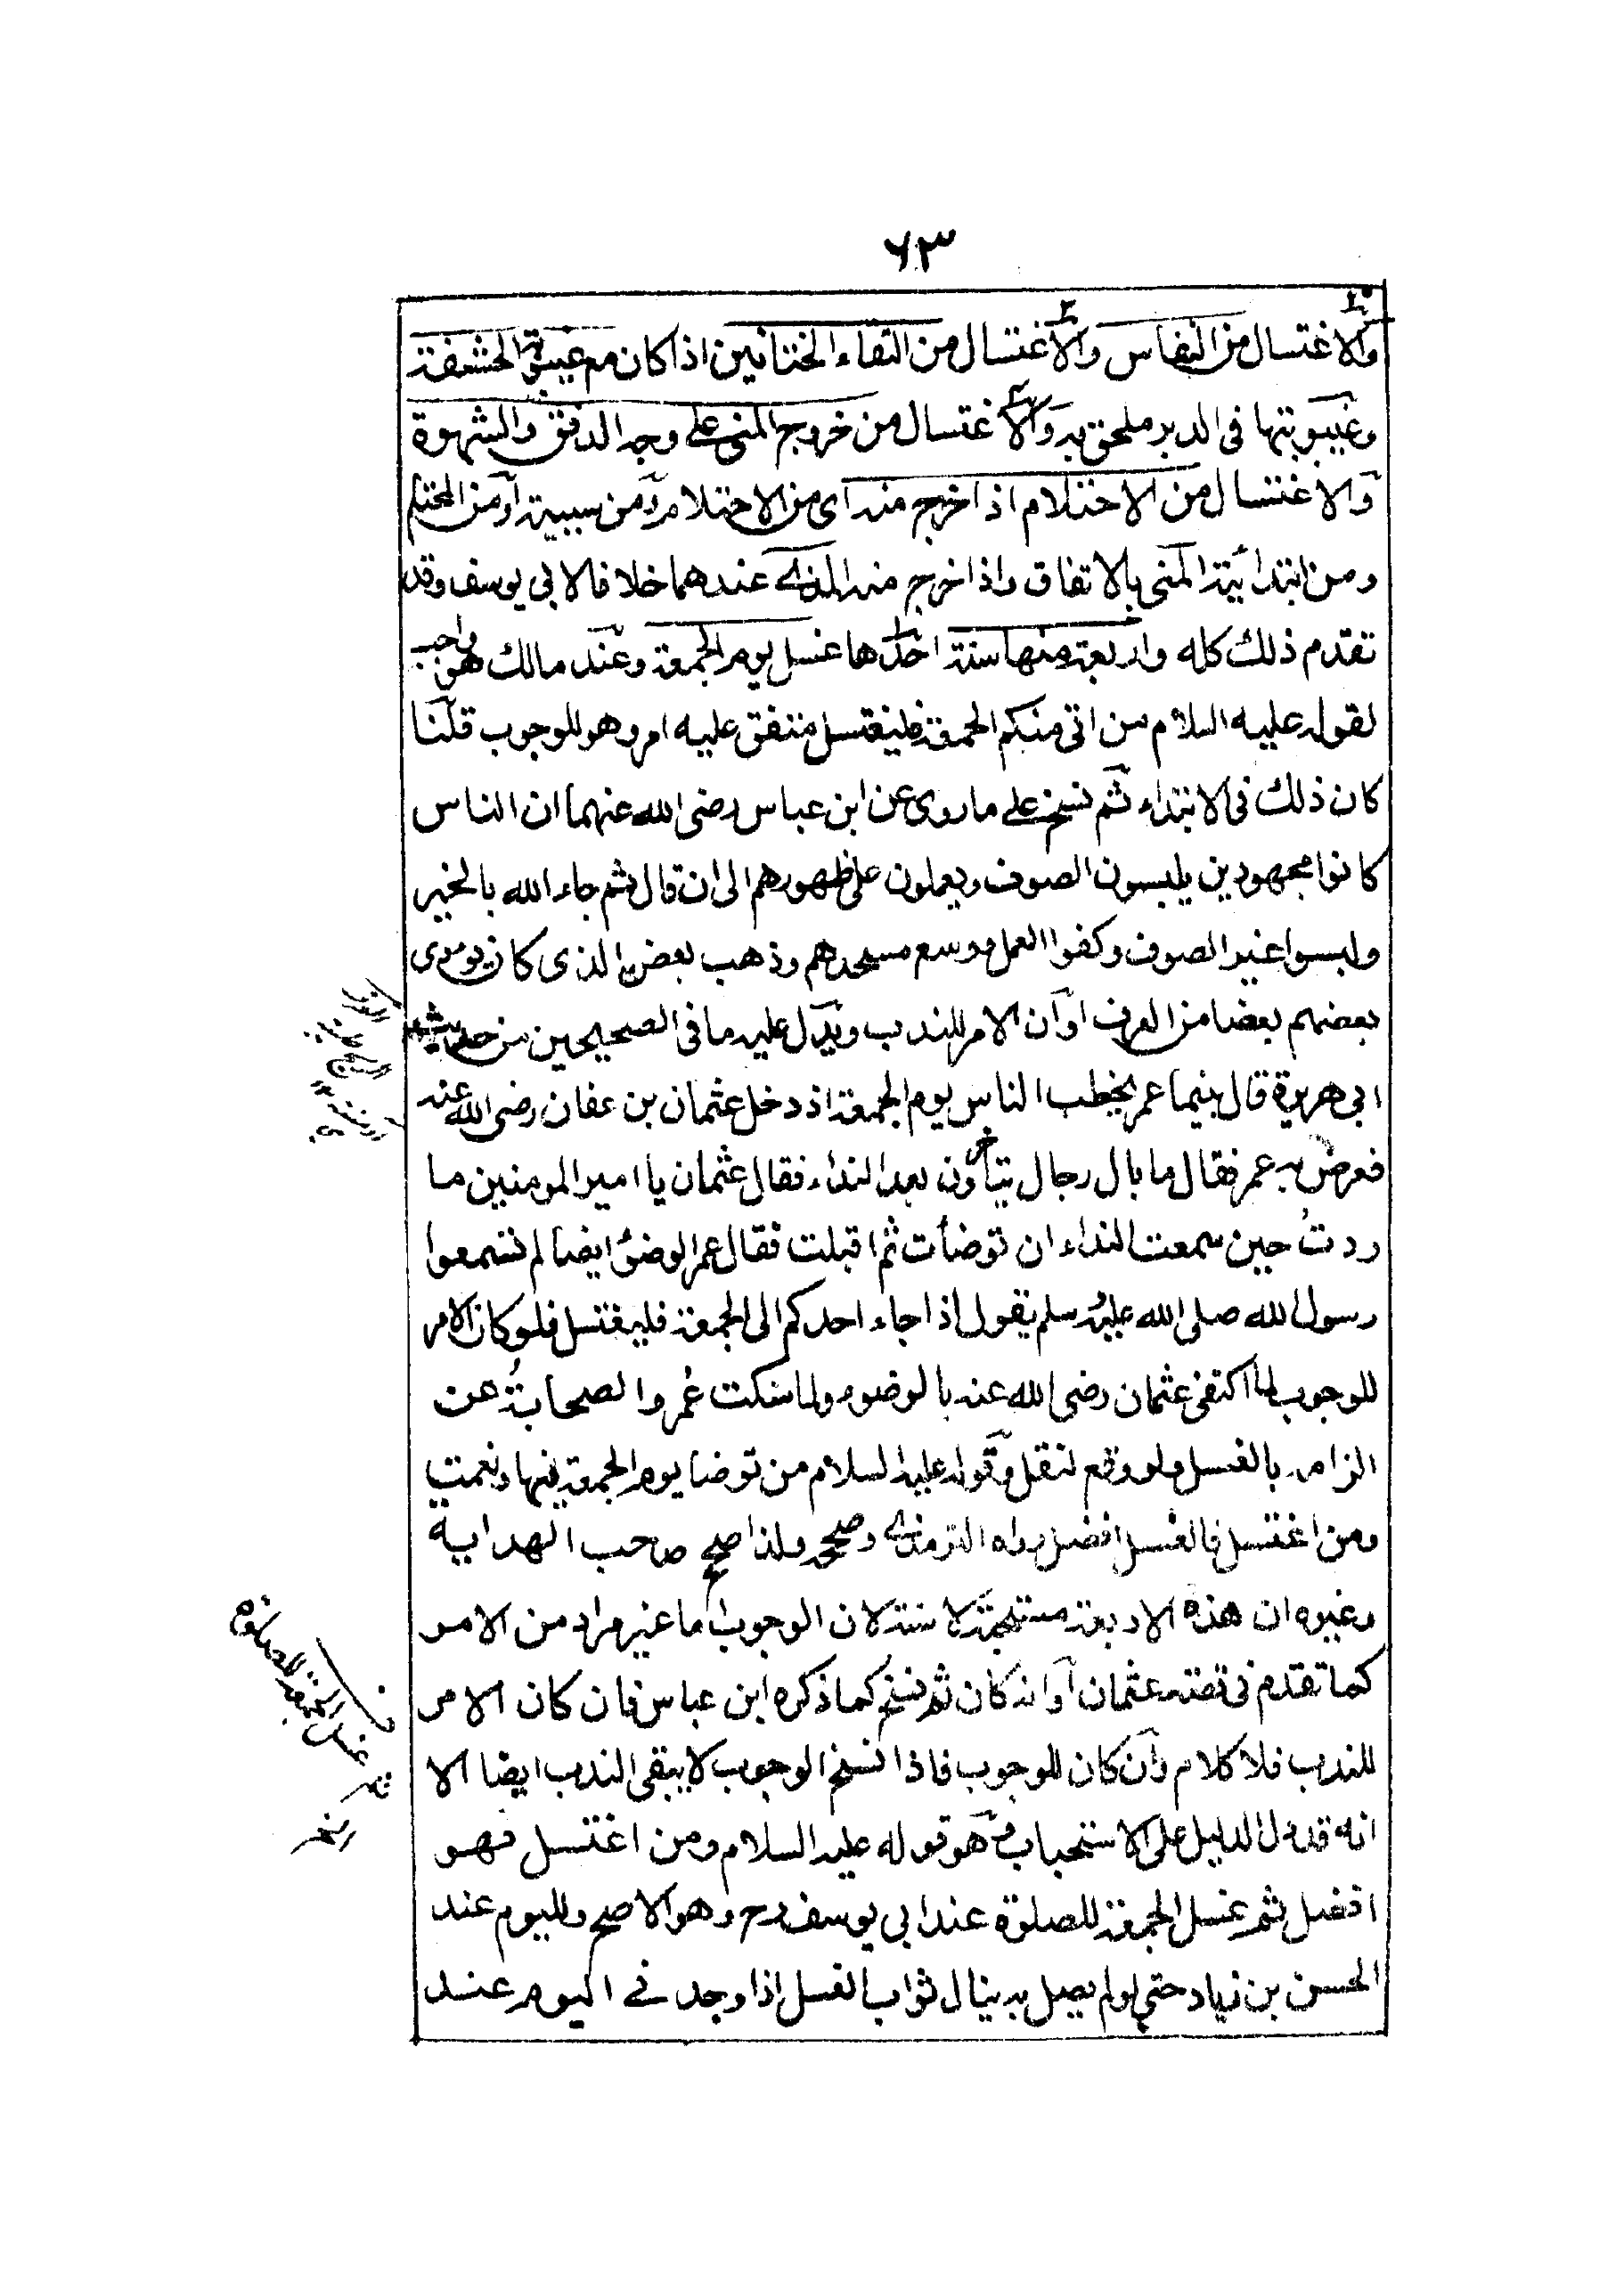 ٦٣
والاغتسال من النفاس والاغتسال من التقاء الختانين اذا كان مع غيبوبة الحشفة
وغيبوبتها فى الدبر ملحق به والاغتسال من خروج المنى على وجه الدفق والشهوة
والاغتسال من الاحتلام اذا خرج منه اى من الاحتلام ومن سببية او من المحتلم
ومن ابتدائية المنى بالاتفاق واذا خرج منه المذى عندهما خلافا لابى يوسف وقد
تقدم ذلك كله واربعة منها سنة احدها غسل يوم الجمعة وعند مالك هو واجب
لقوله عليه السلام من اتى منكم الجمعة فليغتسل متفق عليه امر وهو للوجوب قلنا
كان ذلك فى الابتداء ثم نسخ على ما روى عن ابن عباس رضى الله عنهما ان الناس
كانوا مجهودين يلبسون الصوف ويعملون على ظهورهم الى ان قال ثم جاء الله بالخير
ولبسوا غير الصوف وكفوا العمل ووسع مسجدهم وذهب بعض الذى كان يوذى
بعضهم بعضا من العرف او ان الامر للندب ويدل عليه ما فى الصحيحين من حديث
ابى هريرة قال بينما عمر يخطب الناس يوم الجمعة اذ دخل عثمان بن عفان رضى الله عنه
فعرض به عمر فقال ما بال رجال يتأخرون بعد النداء فقال عثمان يا امير المومنين ما
زدتُ حين سمعت النداء ان توضأت ثم اقبلت فقال عمر الوضؤ ايضا لم تسمعوا
رسول الله صلى الله عليه وسلم يقول اذا جاء احدكم الى الجمعة فليغتسل فلو كان الامر
للوجوب لما اكتفى عثمان رضى الله عنه بالوضوء ولما سكت عُمر والصحابةُ عن
الزامه بالغسل ولو وقع لنقل وقوله عليه السلام من توضا يوم الجمعة فبها ونعمت
ومن اغتسل فالغسل افضل رواه الترمذى وصححه ولذا صحح صاحب الهداية
وغيره ان هذه الاربعة مستحبة لا سنة لان الوجوب اما غير مراد من الامر
كما تقدم فى قصة عثمان او انه كان ثم نسخ كما ذكره ابن عباس فان كان الامر
للندب فلا كلام وان كان للوجوب فاذا نسخ الوجوب لا يبقى الندب ايضا الا
انه قد دل الدليل على الاستحباب وهو قوله عليه السلام ومن اغتسل فهو
افضل ثم غسل الجمعة للصلوة عند ابى يوسف رح وهو الاصح ولليوم عند
الحسن بن زياد حتى لو لم يصل به ينال ثواب الغسل اذا وجد فى اليوم عند
غسل الجمعة للصلوة